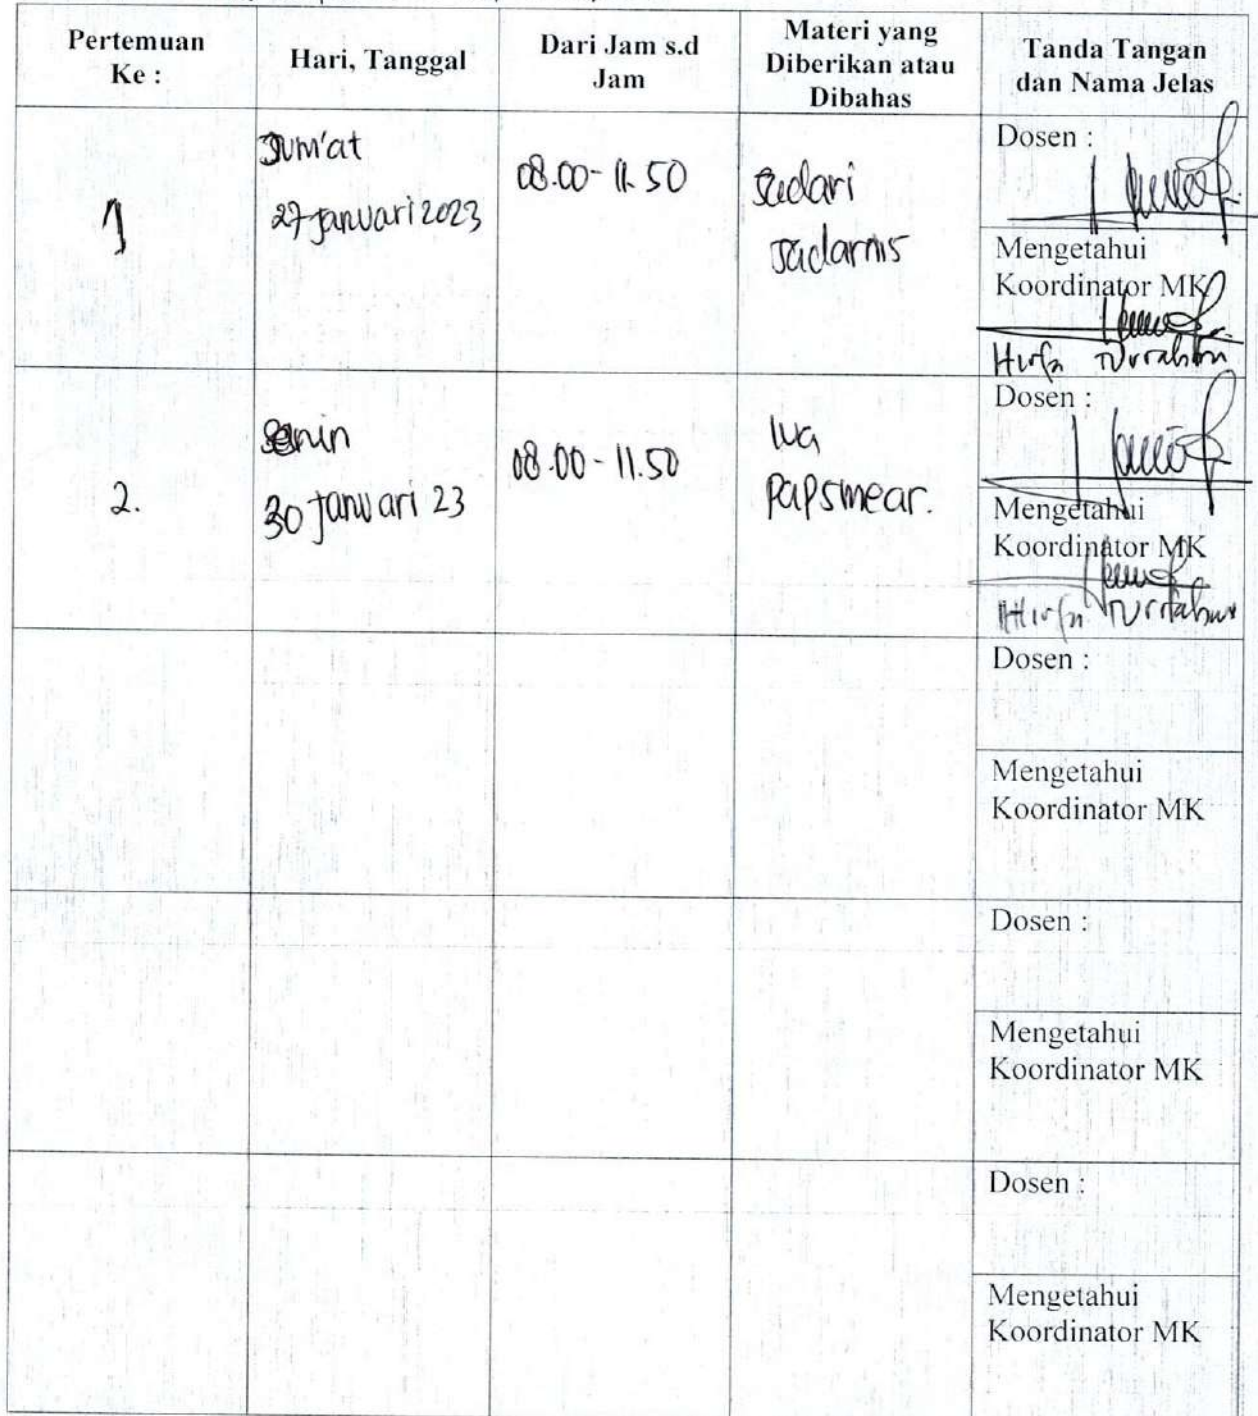 Pertemuan
Ke :
Hari, Tanggal
Dari Jam s.d
Jam
Materi yang
Diberikan atau
Dibahas
Tanda Tangan
dan Nama Jelas
1
Jum'at
27 januari 2023
08.00 - 11.50
Sadari
Sadarnis
Dosen :
Mengetahui
Koordinator MK
2.
Senin
30 januari 23
08.00 - 11.50
Iva
Papsmear.
Dosen :
Mengetahui
Koordinator MK
Dosen :
Mengetahui
Koordinator MK
Dosen :
Mengetahui
Koordinator MK
Dosen :
Mengetahui
Koordinator MK